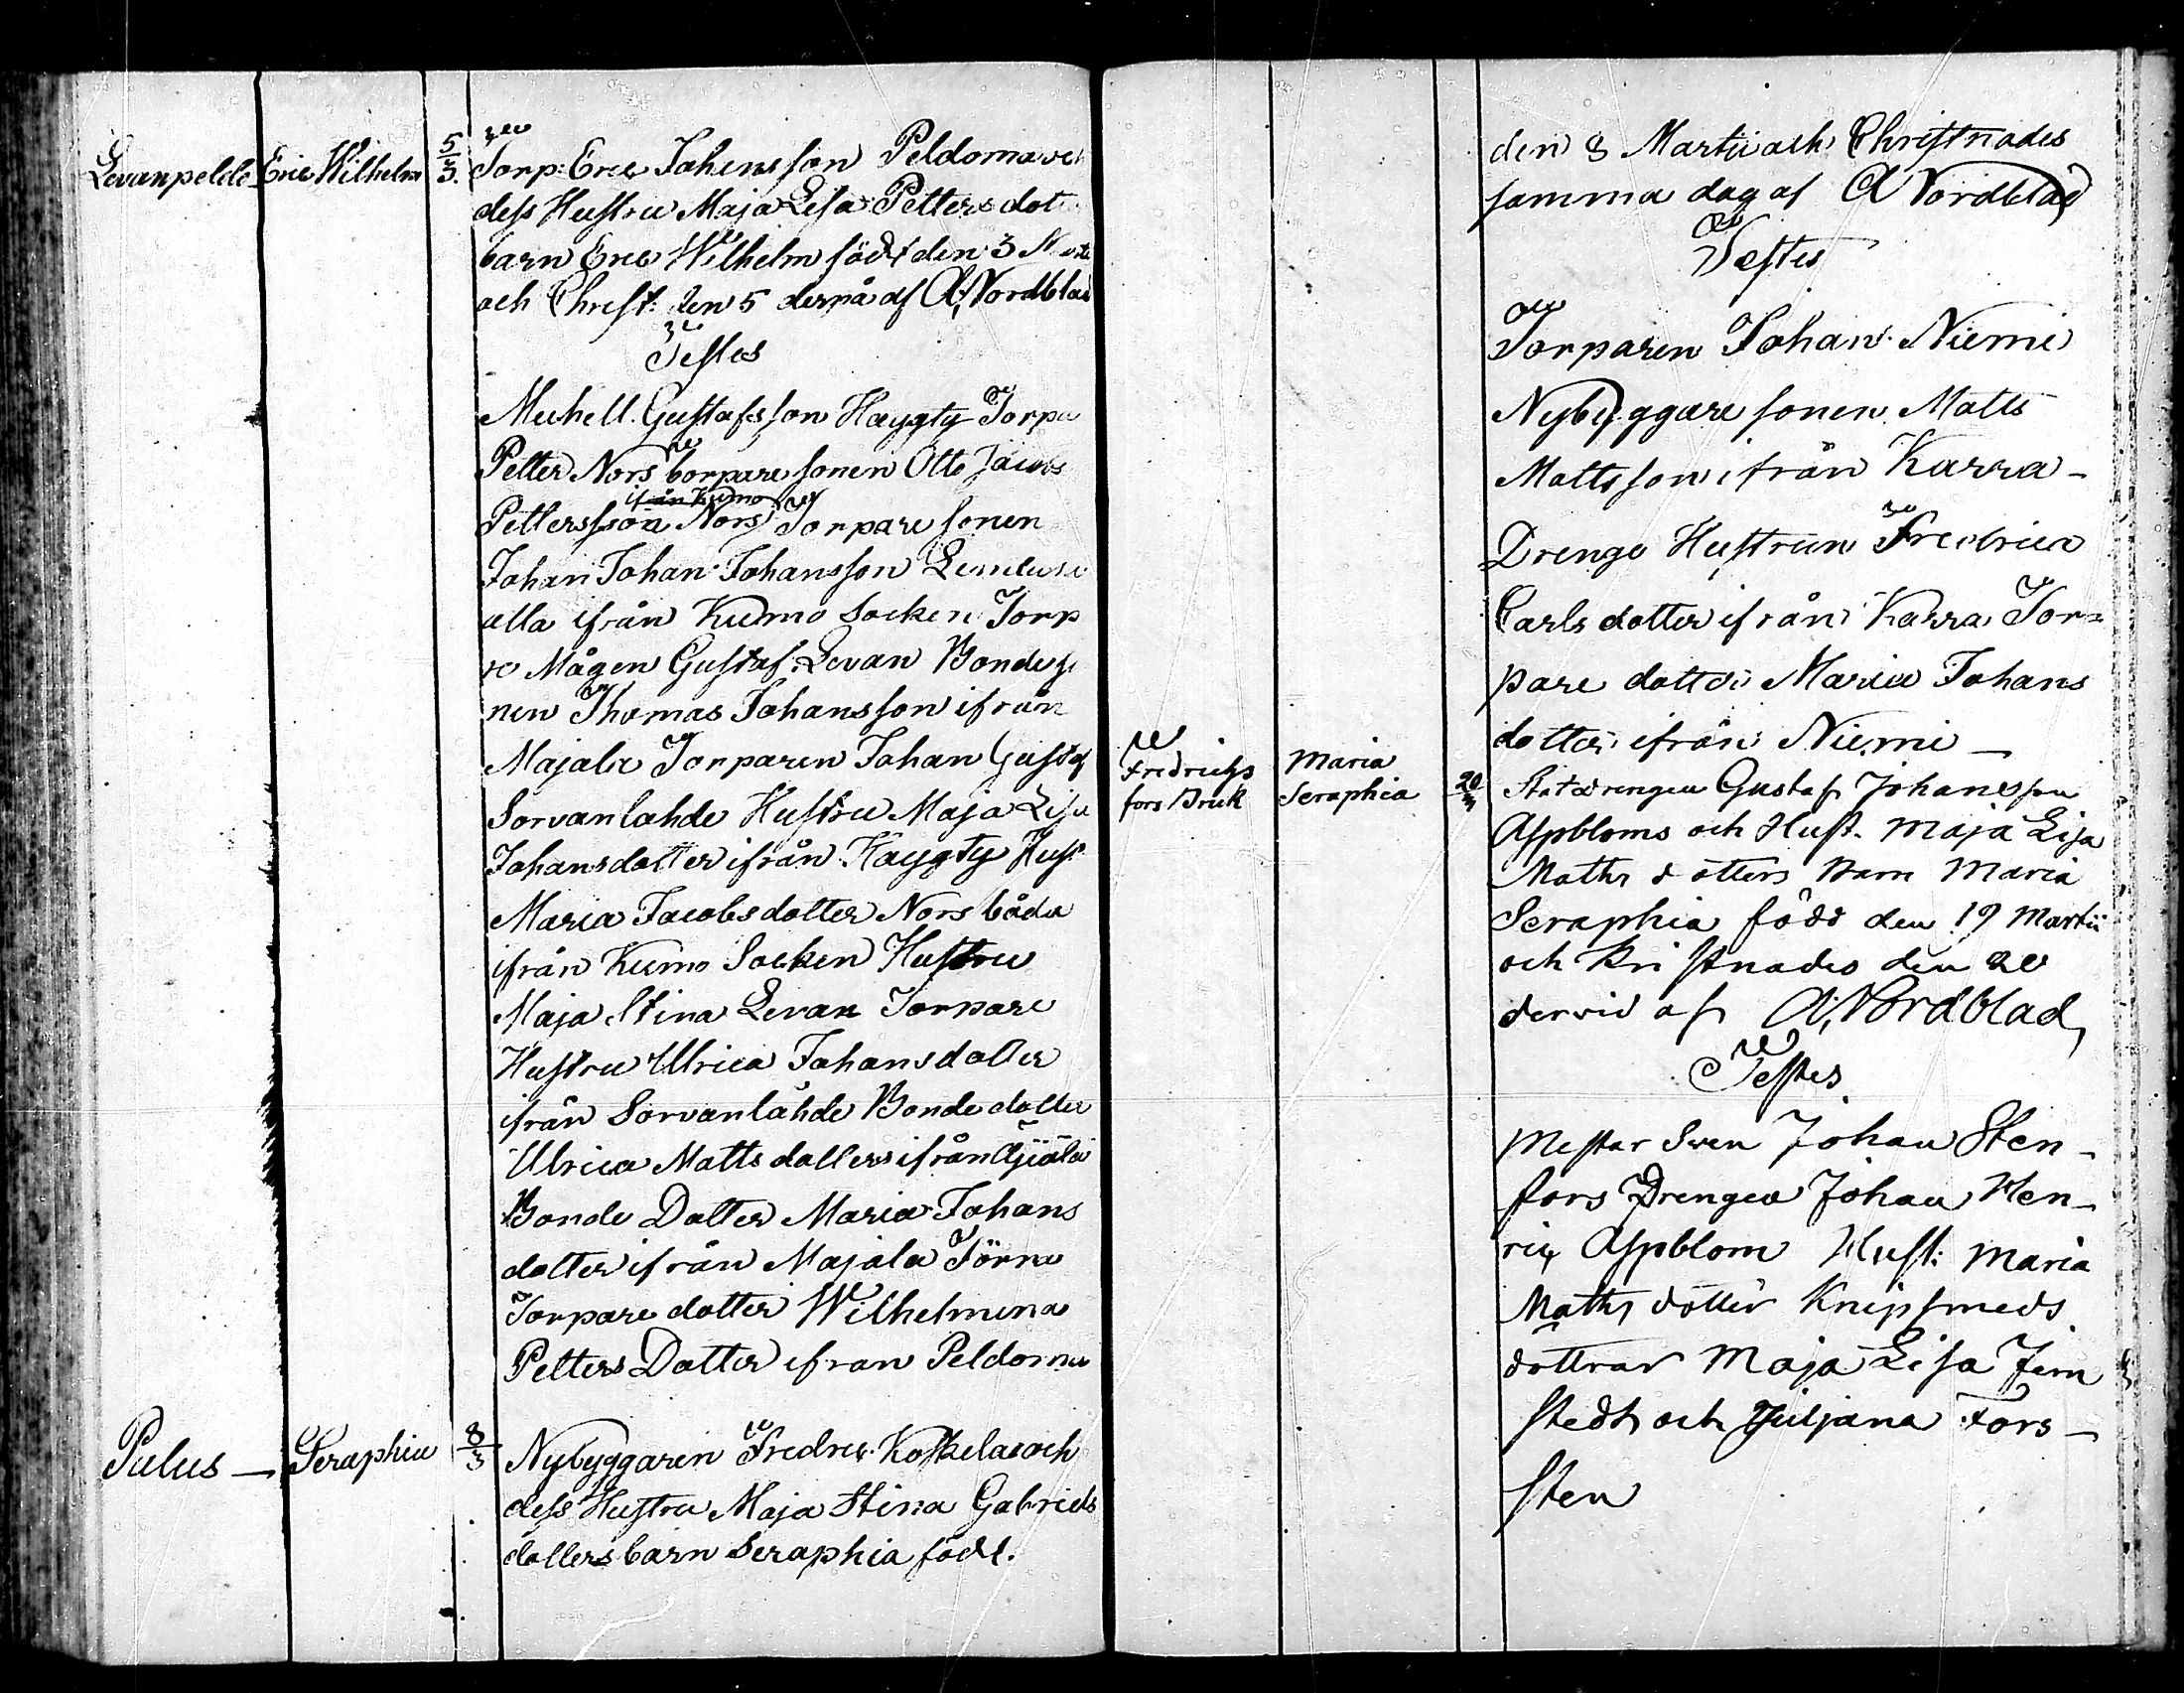 Levanpelde Eric Wilhelm 5/3. Torp: Eric Johansson Peldoma och
dess Hustru Maja Lisa Petters dot
barn Eric Wilhelm född den 3
och Christ: den 5 derpå af A, Nordblad
Testes
Michell Gustafsson Haygty Torpa
Petter Nors torpare sonen Otto Jacobs
ifrån Kumo
Pettersson Nors Torpare sonen
Johan Johan Johansson
alla ifrån Kumo Socken Torp
re Mågen Gustaf Levan Bonde so
nen Thomas Johansson ifrån
Majala Torparen Johan Gustaf
Sorvanlahde Hustru Maja Lisa
Johansdotter ifrån Haygty Hust
Maria Jacobsdotter Nors båda
ifrån Kumo Socken Hustru
Maja Stina Levan Torpare
Hustru Ulrica Johansdotter
ifrån Sorvanlahde Bonde dotter
Ulrica Matts dotters ifrån
Bonde Dotter Maria Johans
dotter ifrån Majala
Torpare dotter Wilhelmina
Petters Dotter ifran Peldoma
Pulus — Seraphia 8/3 Nybyggaren Fredric Koskela och
dess Hustru Maja Stina Gabriels
dotters barn Seraphia född.
den 8 Martii och Christnades
samma dag af A Nordblad
Testes
Torparen Johan Niemi
Nybyggare sonen Matts
Mattsson ifrån Karra -
Drenge Hustrun Fredrica
Carls dotter ifrån Karra Tor=
pare dotter Maria Johans
dotter ifrån Niemi —
Fredrichs
fors Bruk Maria
Seraphia 20/3 Statdrengen Gustaf Johansson
Aspbloms och Hust. Maja Lisa
Maths dotters Barn Maria
Seraphia född den 19 Martii
och Kristnades den 20
dervid af A, Nordblad
Testes
Mestar Sven Johan Sten -
fors Drengen Johan Hen -
ric Aspblom Hust: Maria
Maths dotter Knipsmeds
dottrar Maja Lisa Jern
stedt och Juljana Fors -
sten